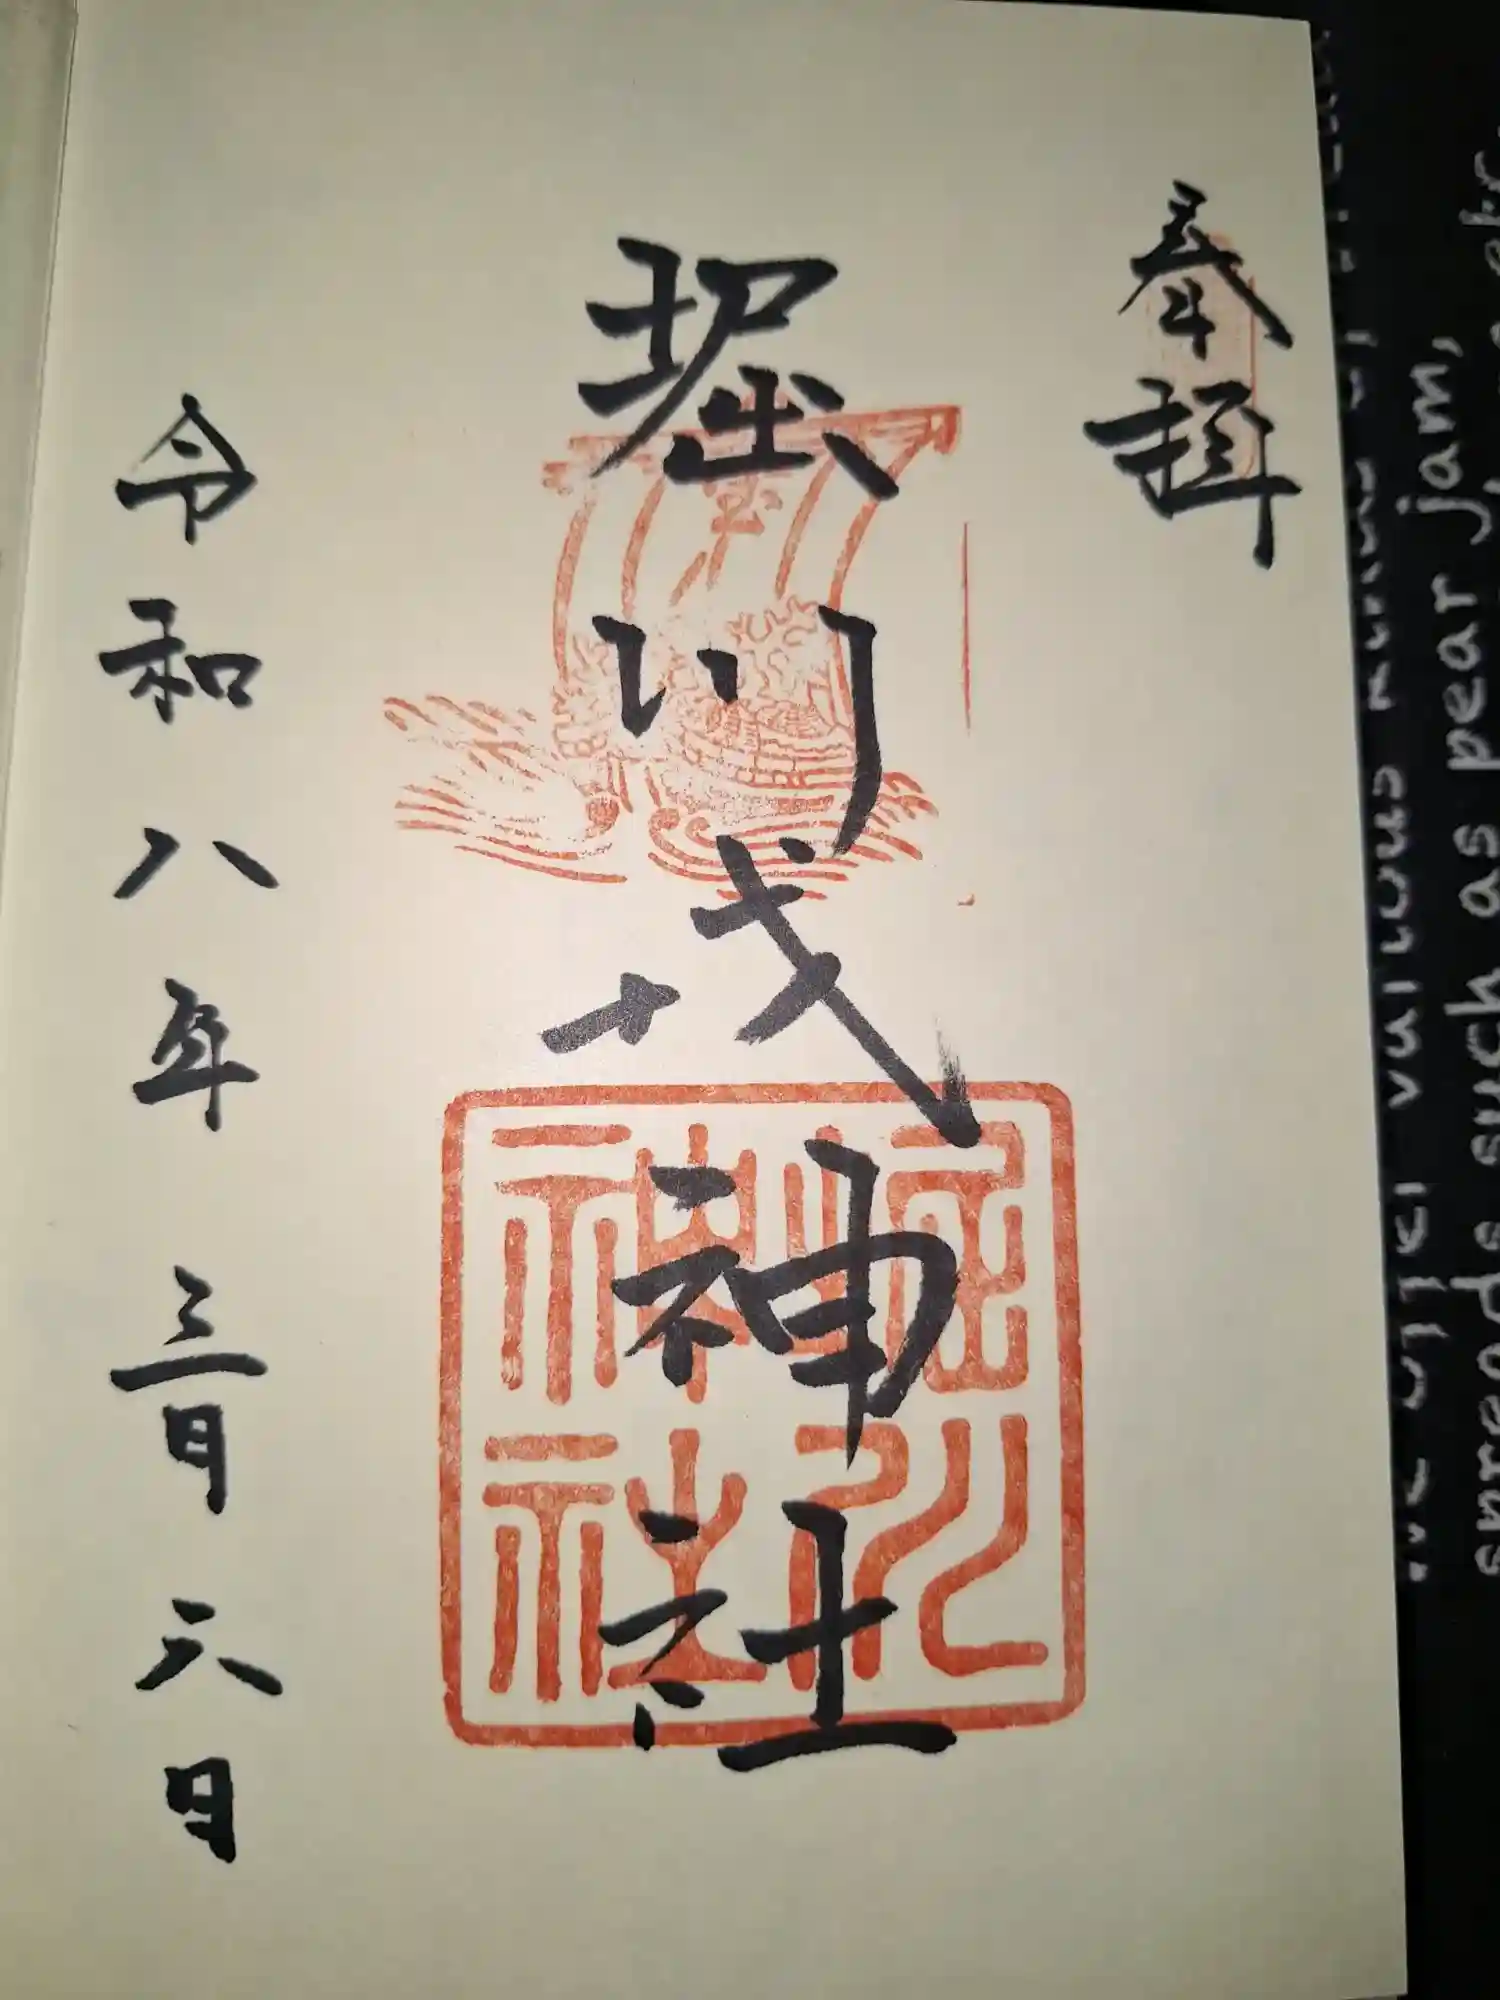 奉拝
堀川戎神社
令和八年三月六日
宝
堀川
神社
various
spreads such as pear jam,